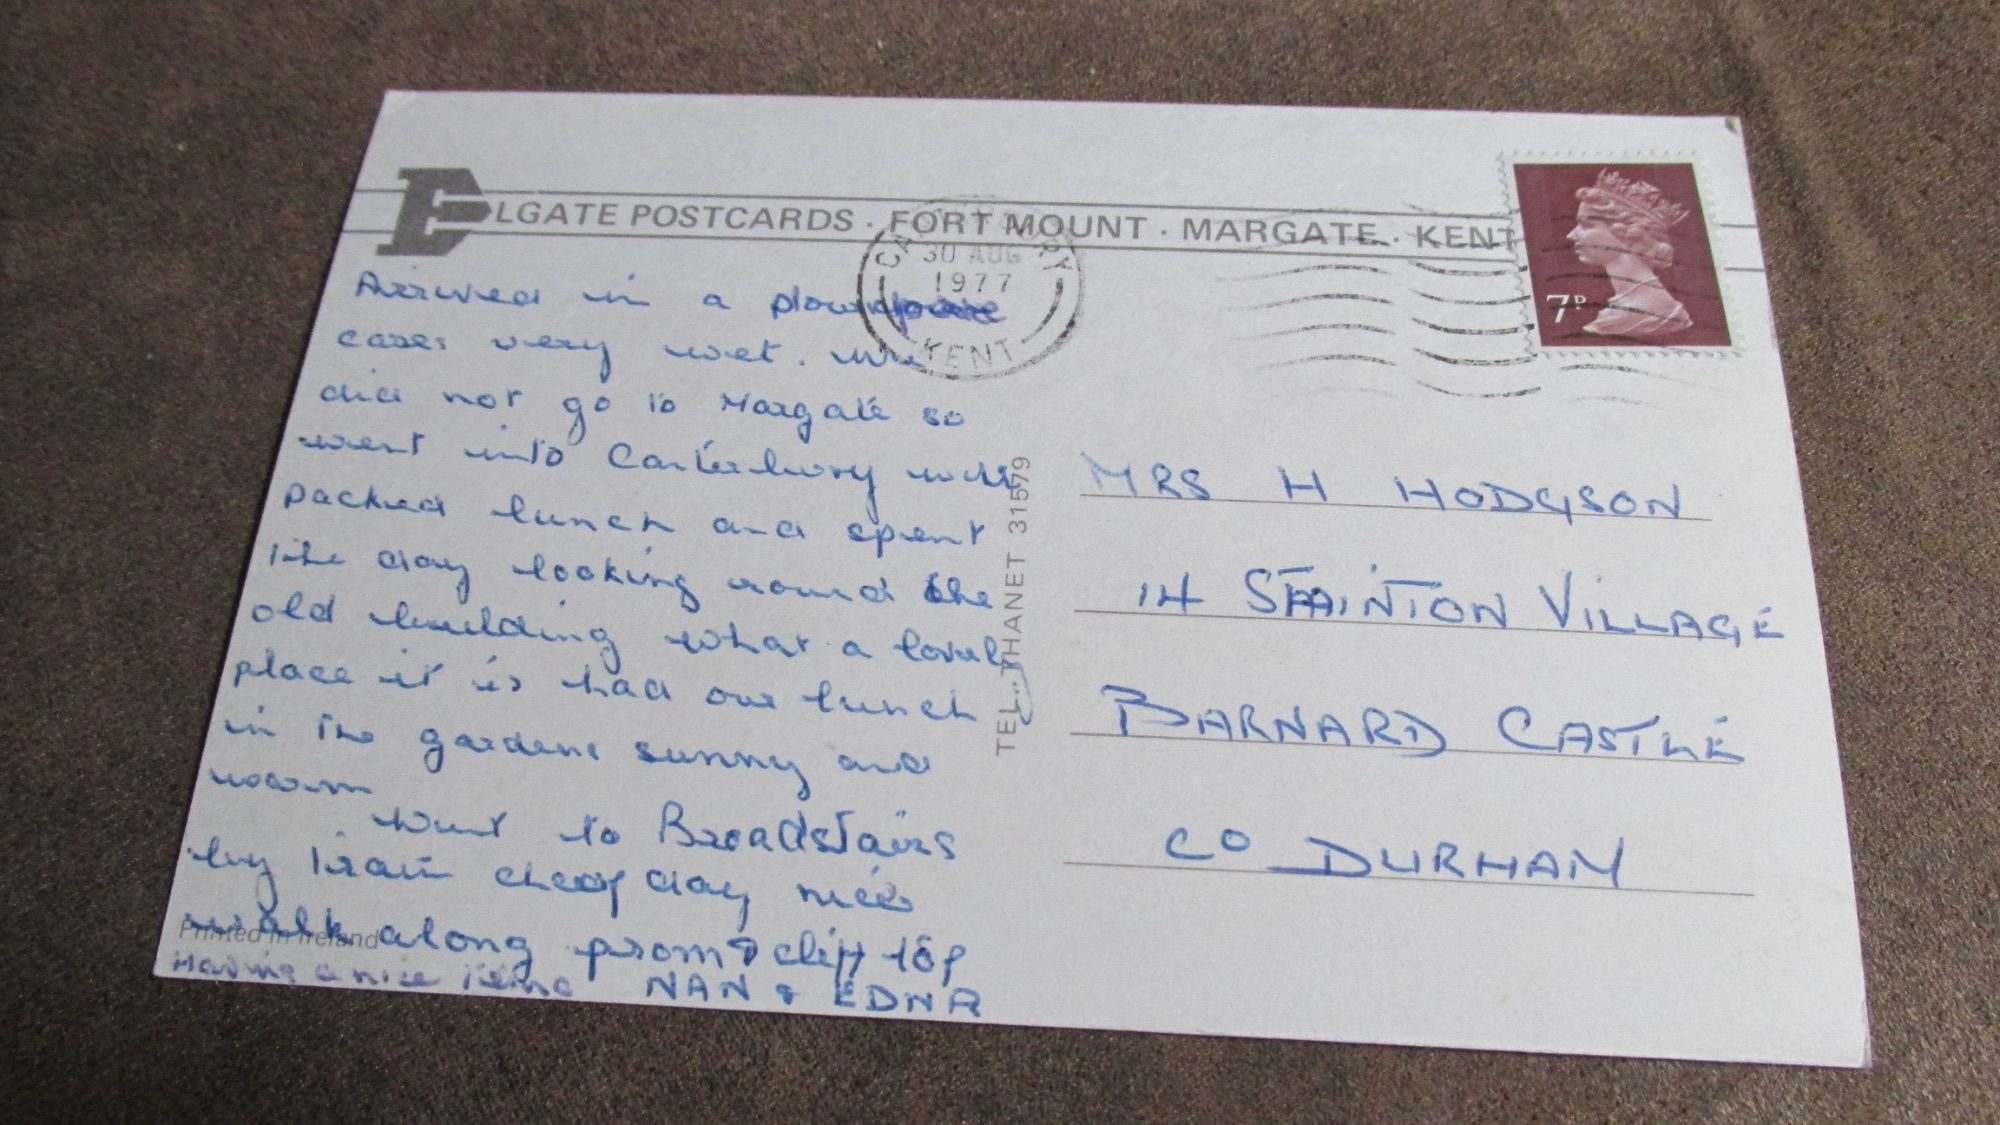 ELGATE POSTCARDS · FORT MOUNT · MARGATE · KENT
CANTERBURY
30 AUG
1977
KENT
7P
Arrived in a downpour
cases very wet. We
did not go to Margate so
went into Canterbury with
packed lunch and spent
the day looking round the
old building what a lovely
place it is had our lunch
in the gardens sunny and
warm
Went to Broadstairs
by train cheap day nice
walk along prom & cliff top
Having a nice time NAN & EDNA
Printed in Ireland
TEL. THANET 31579
MRS H HODGSON
14 STAINTON VILLAGE
BARNARD CASTLE
CO DURHAM